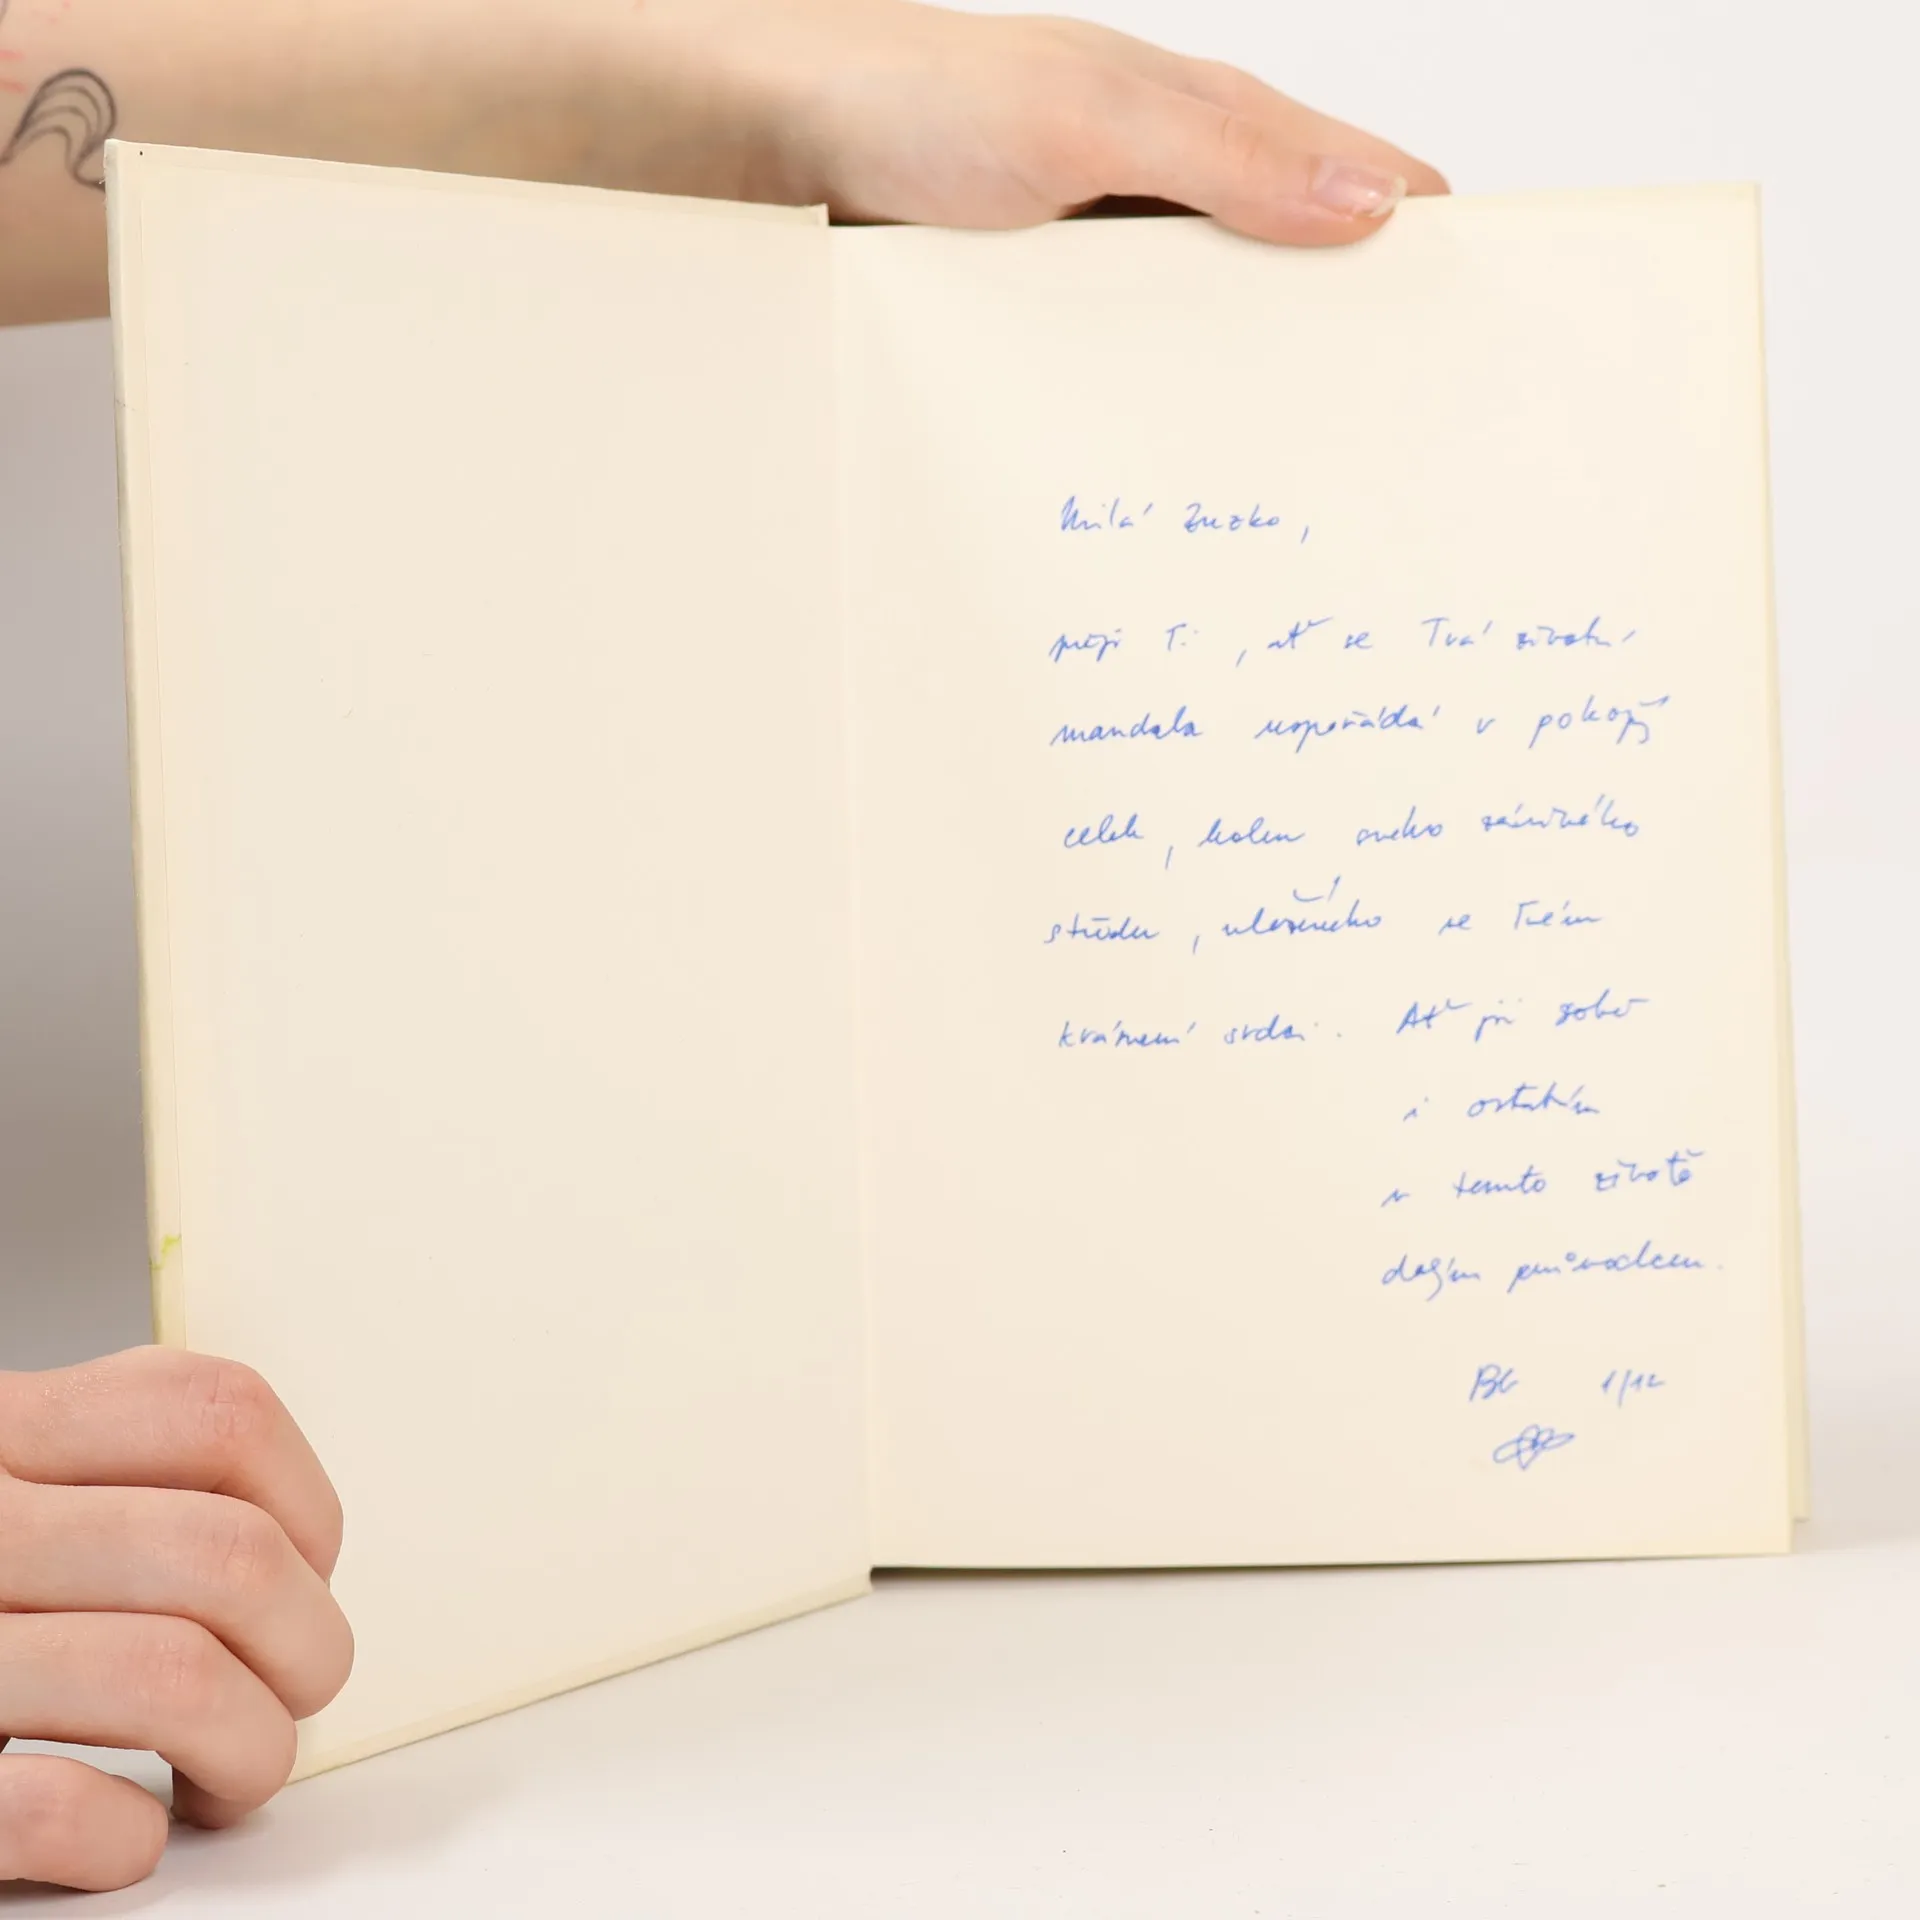 Milá Zuzko,
přeji Ti, ať se Tvá životní
mandala uspořádá v
celek, kolem svého zářivého
středu, uloženého ve Tvém
krásném srdci. Ať jsi sobě
i ostatním
v tomto životě
dobrým průvodcem.
BG 1/12